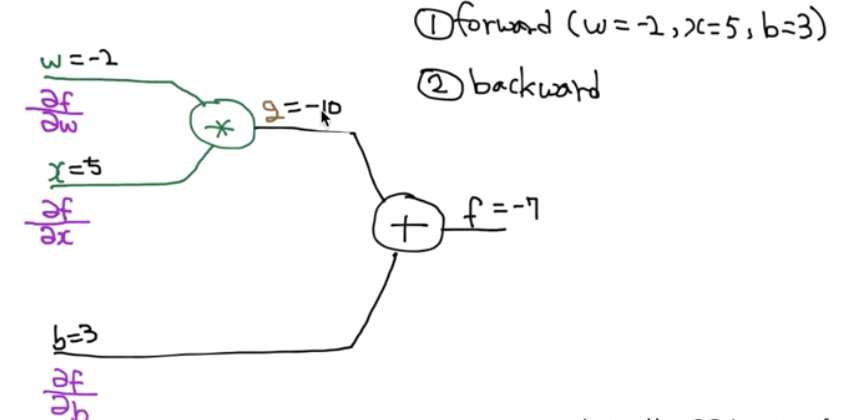 ① forward (w=-2, x=5, b=3)
② backward
w=-2
∂f/∂w
x=5
∂f/∂x
*
g=-10
+
f=-7
b=3
∂f/∂b